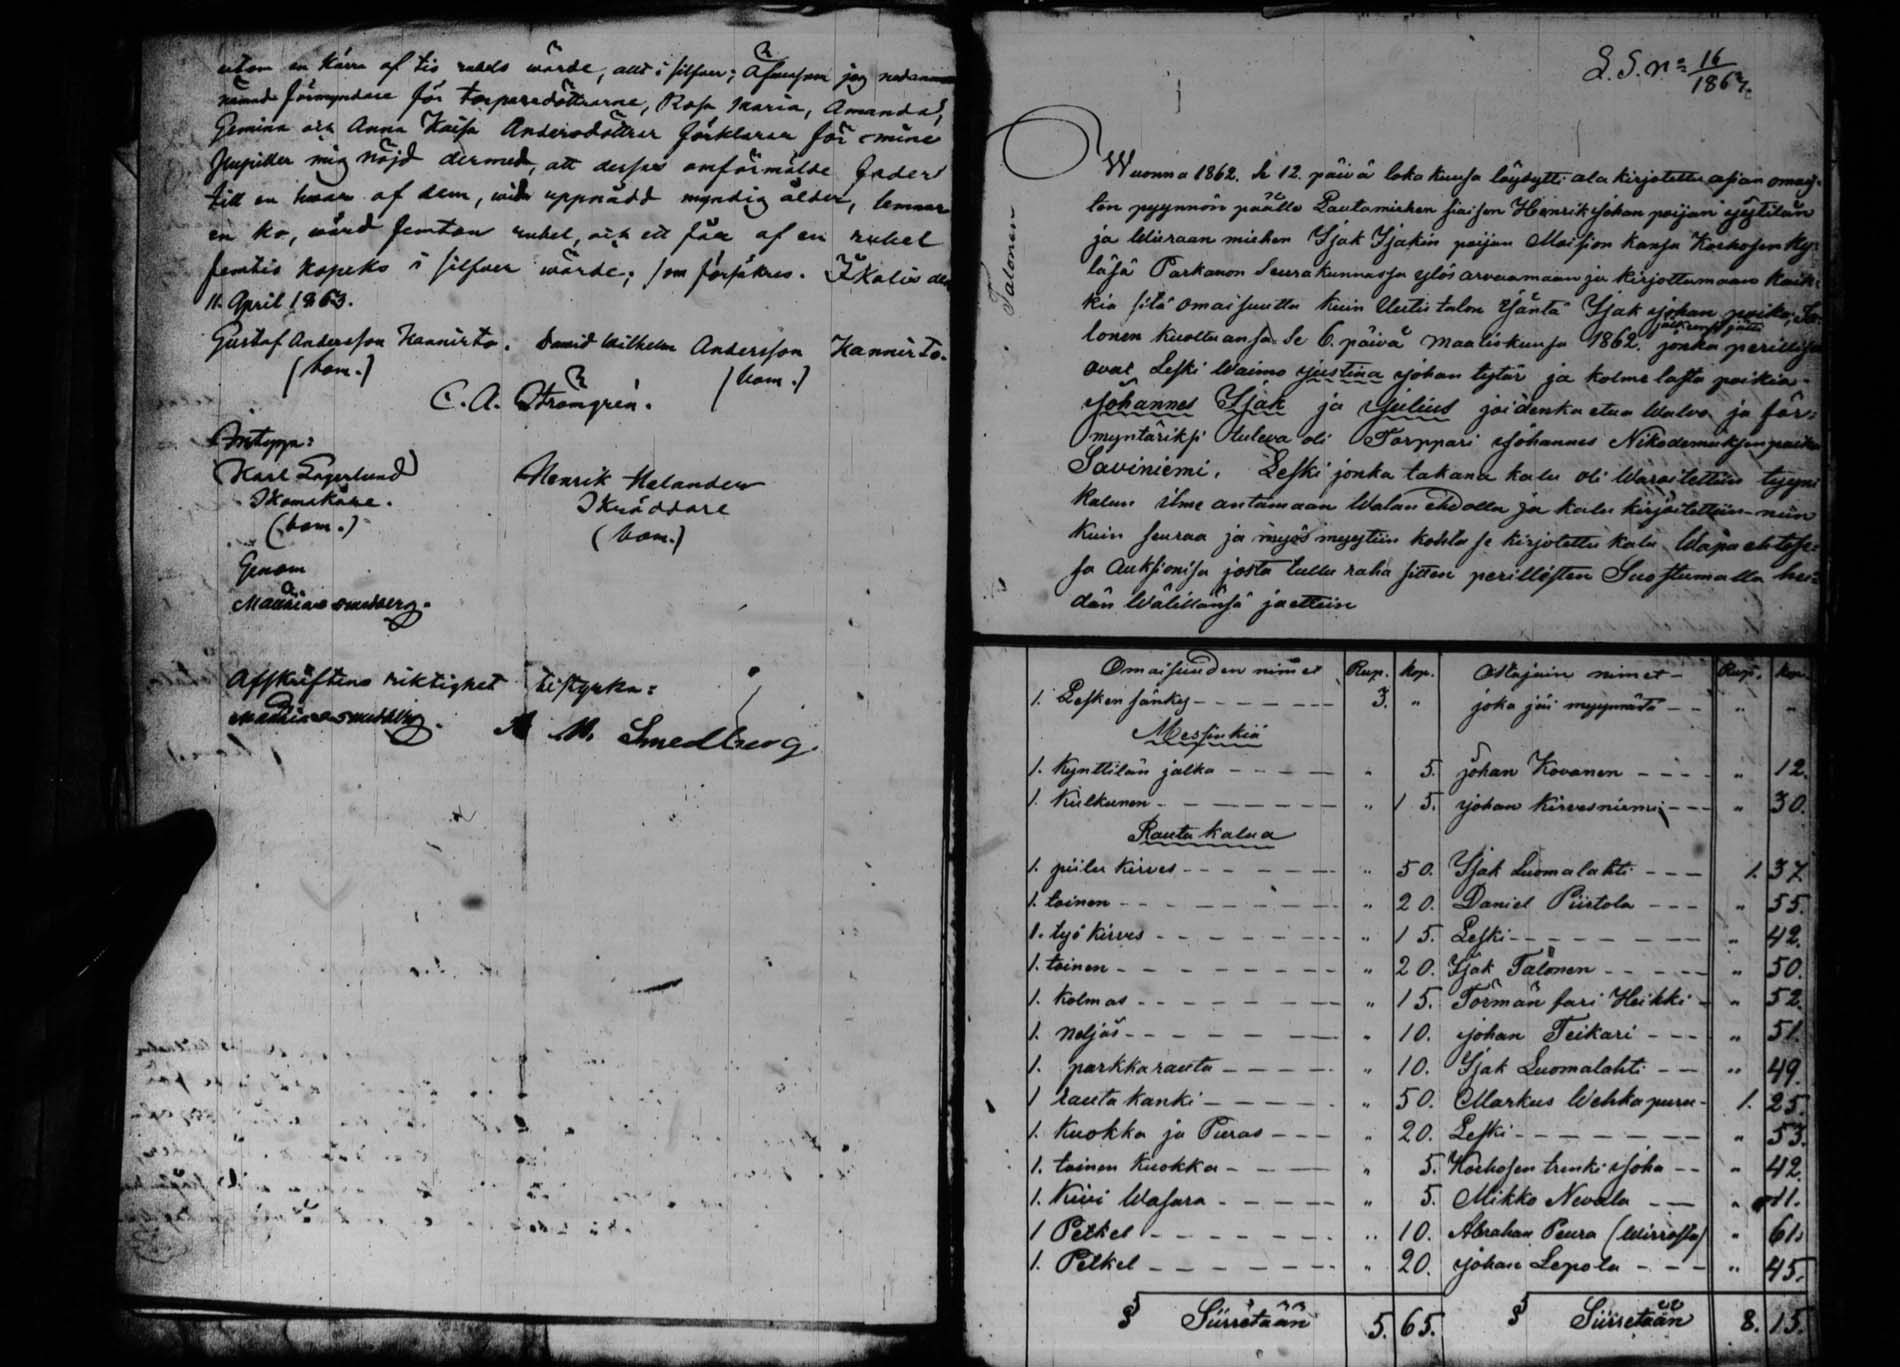 utom en kärra af tio rubels wärde, allt i silfwer; Äfwensom jag nedannämnd
förmyndare för torparedöttrarne, Rosa Maria, Amanda,
Gemina och Anna Kaisa Andersdöttrar förklarar för mine
Pupiller mig nöjd dermed, att desses omförmälde fader
till en hwar af dem, wid uppnådd myndig ålder, lemnar
en ko, wärd femton rubel, och ett får af en rubel
femtio kopeks i silfwer wärde; som försäkras. Ikalis den
11. April 1863.
Gustaf Andersson Kannisto. David Wilhelm Andersson Kannisto.
(bom.) (bom.)
C. A. Strömgrén.
Karl Lagerlund Henrik Helander
Skomakare. Skräddare
(bom.) (bom.)
Genom
Matthias Smedberg.
Afskriftens riktighet bestyrka:
Matthias Smedberg. A M. Smedberg.
L. S. n=o 16/1867.
Talonen
Wuonna 1862. Se 12. päivä lokakuusa löysytti ala kirjotettu asian omais-
ten pyynnön päälle Lautamiehen siaisen Henrik Johan poijan
ja Wieraan miehen Isak Isakin poijan Moision kansa Korhosen Ky-
läsä Parkanon Seurakunnassa ylös arvaamaan ja kirjottamaan kaik-
kia sitä omaisuutta kuin Uutis talon Isäntä Isak Johan poika Ta-
lonen kuoltuansa Se 6. päivä Maaliskuusa 1862. jälkeensä jätti jonka perilliset
ovat Leski Waimo Justina Johan tytär ja kolme lasta poikia
Johannes Isak ja Julius joidenka etua Walvo ja för-
myntäriksi tuleva oli Torppari Johannes Nikodemuksen poika
Saviniemi. Leski jonka takana kalu oli Waroitettiin tyyni
kalun ilme antamaan Walan ehdolla ja kalu kirjoitettiin niin
kuin seuraa ja myös myytiin kohta se kirjotettu kalu Wapa ehtose-
sa Auksionisa josta tullu raha sitten perillisten Suostumalla hei-
dän Wälillänsä jaettiin
Omaisuuden nimet Rup. kop. Ostajain nimet Rup. kop.
1. Lesken sänky - - - 3. " joka jäi myymätä - - " "
Messinkiä
1. Kynttilän jalka - - - " 5. Johan Kovanen - - - " 12.
1. Kulkunen - - - " 15. Johan Kirvesniemi - - " 30.
Rauta kalua
1. piilu kirves - - - " 50. Isak Luomalahti - - - 1. 37.
1. toinen - - - " 20. Daniel Piirtola - - - " 55.
1. työ kirves - - - " 15. Leski - - - " 42.
1. toinen - - - " 20. Isak Talonen - - - " 50.
1. Kolmas - - - " 15. Törmän fari Heikki - " 52.
1. neljäs - - - " 10. Johan Teikari - - - " 51.
1. parkkarauta - - - " 10. Isak Luomalahti - - " 49.
1 rauta kanki - - - " 50. Markus Wehkapuru - 1. 25.
1. Kuokka ja Puras - - - " 20. Leski - - - " 53.
1. toinen kuokka - - - " 5. Korhosen trenki Joha - - " 42.
1. Kiwi Wasara - - - " 5. Mikko Nevala - - " 11.
1 Petkel - - - " 10. Abraham Peura (Wirroilta) " 61.
1. Petkel - - - " 20. Johan Lepola - - - " 45.
Siirretään 5. 65. Siirretään 8. 15.